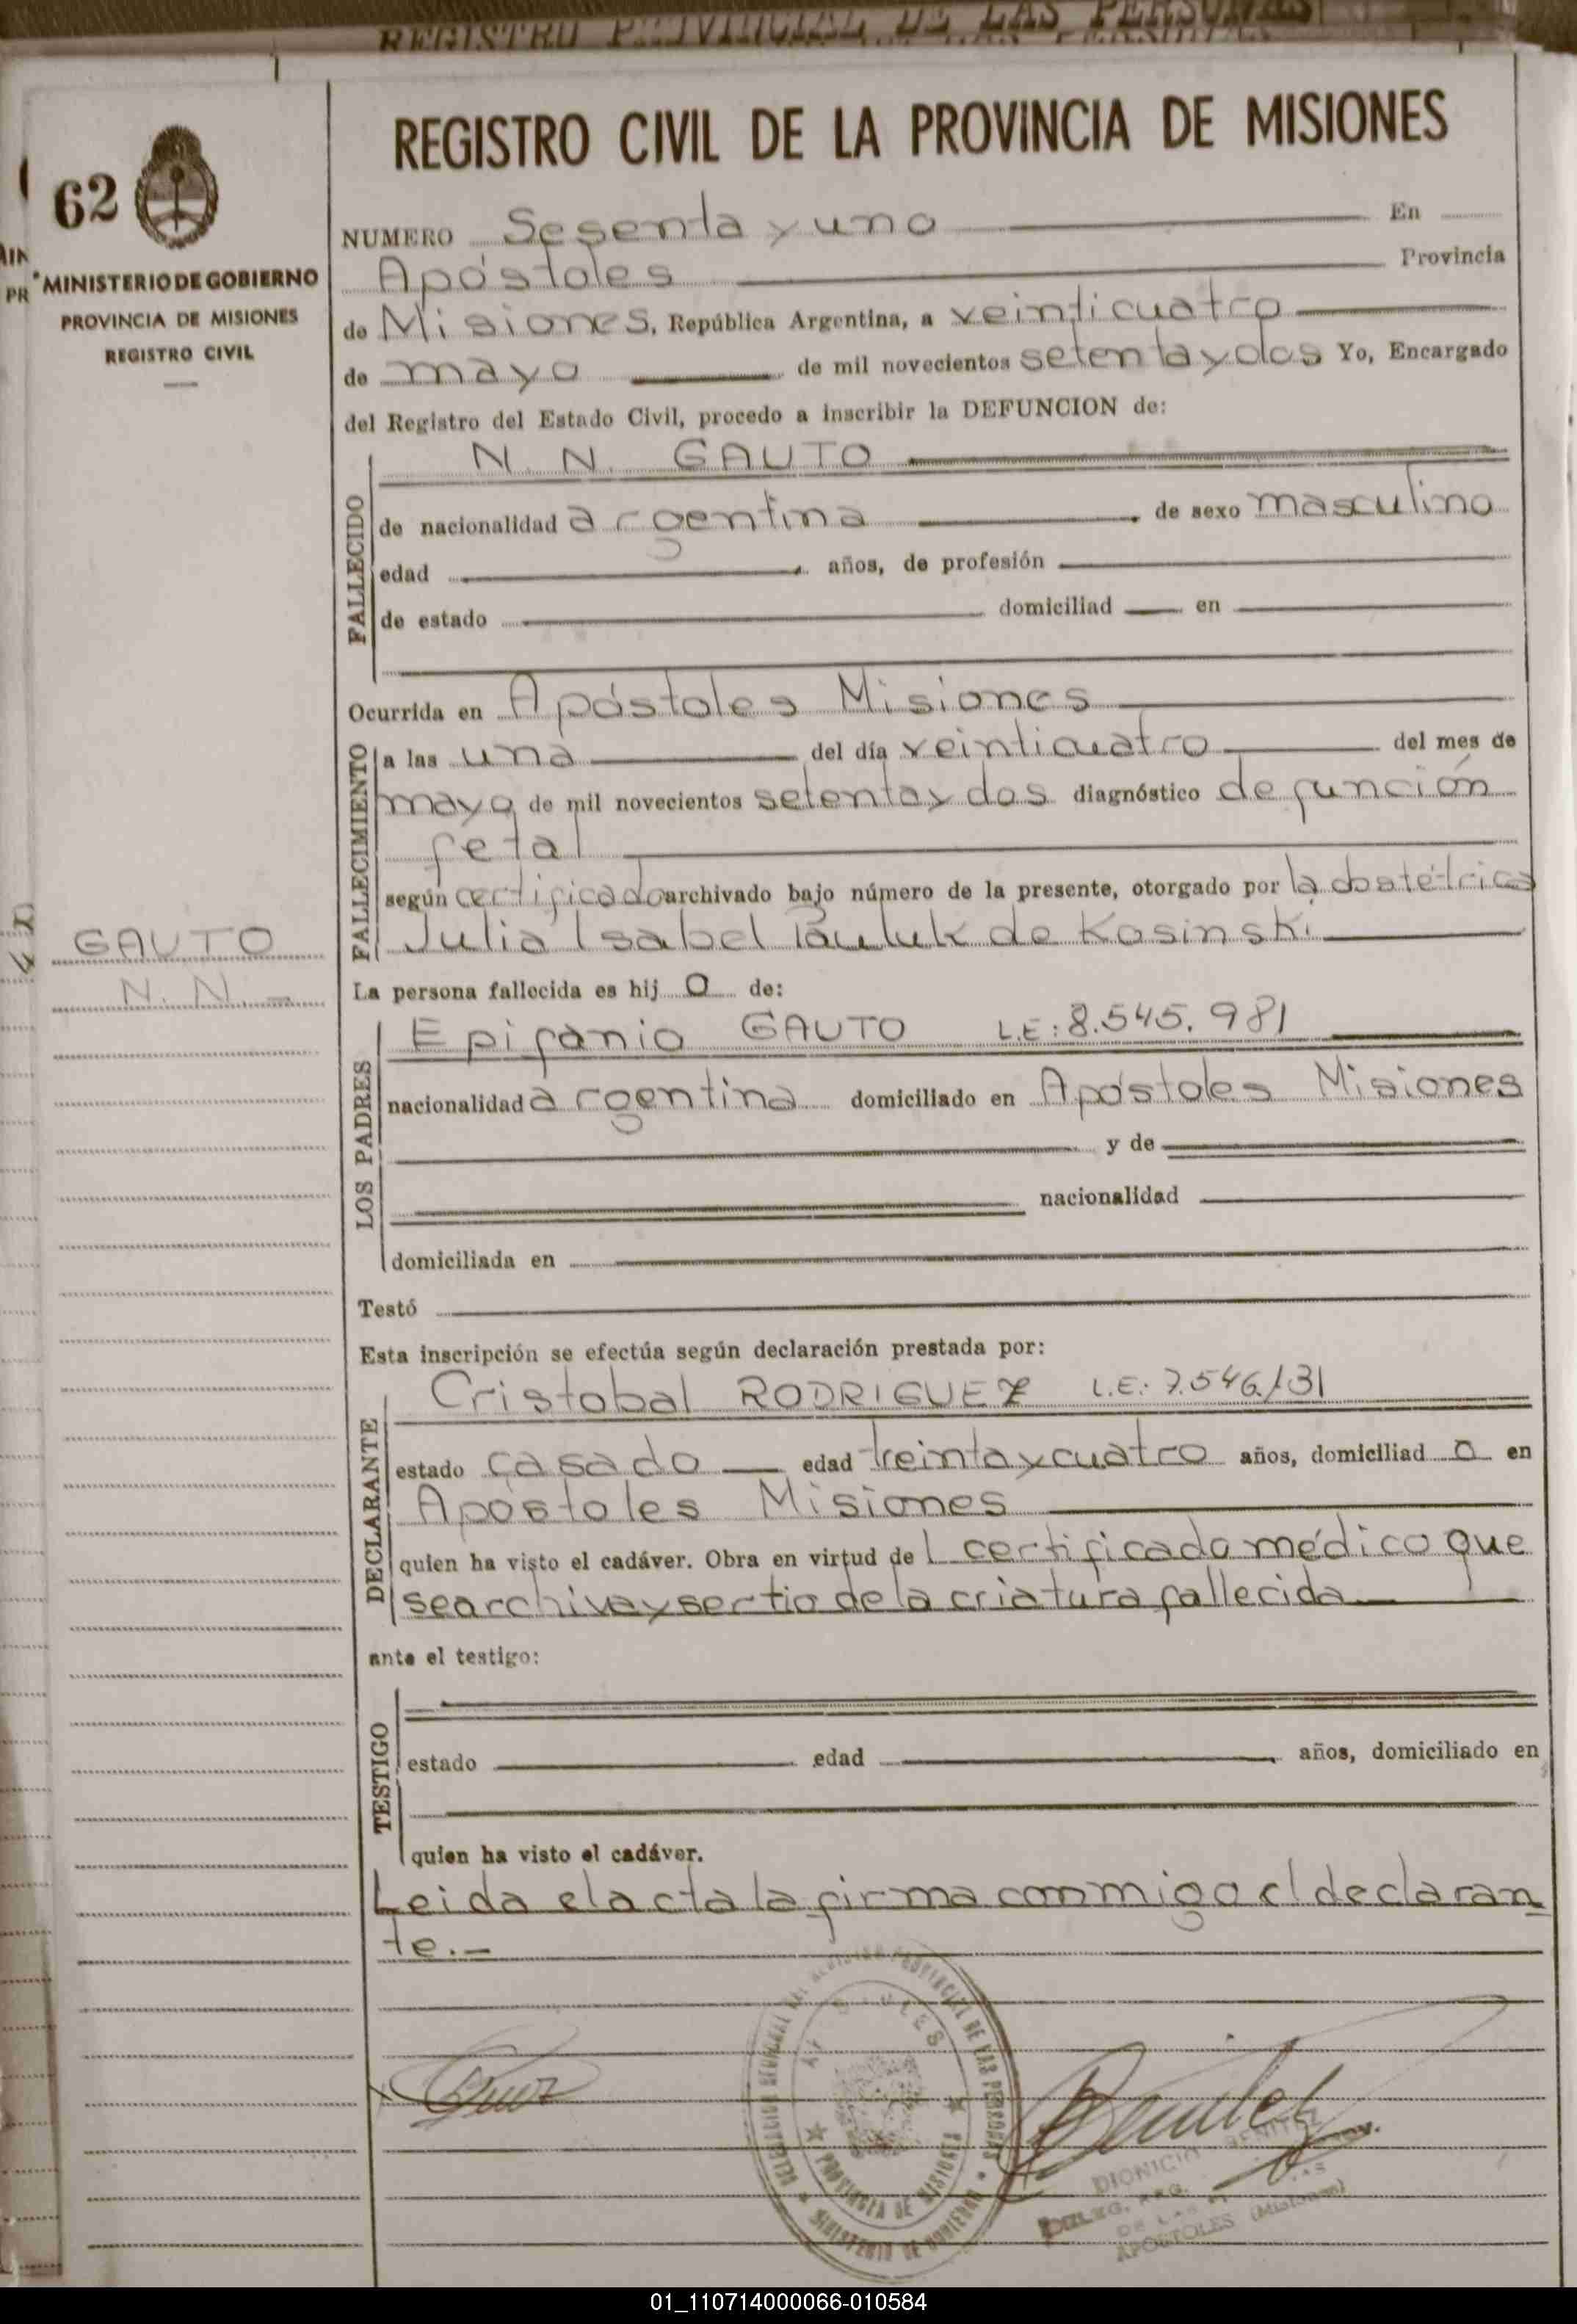 REGISTRO PROVINCIAL DE LAS PERSONAS
REGISTRO CIVIL DE LA PROVINCIA DE MISIONES
62
MINISTERIO DE GOBIERNO
PROVINCIA DE MISIONES
REGISTRO CIVIL
NUMERO Sesenta y uno En
Apóstoles Provincia
de Misiones, República Argentina, a veinticuatro
de mayo de mil novecientos setenta y dos Yo, Encargado
del Registro del Estado Civil, procedo a inscribir la DEFUNCION de:
FALLECIDO
N. N. GAUTO
de nacionalidad argentina, de sexo masculino
edad años, de profesión
de estado domiciliad en
Ocurrida en Apóstoles Misiones
FALLECIMIENTO
a las una del día veinticuatro del mes de
mayo de mil novecientos setenta y dos diagnóstico defunción
fetal
según certificado archivado bajo número de la presente, otorgado por la obstétrica
Julia Isabel Pauluk de Kosinski
GAUTO
N. N. -
La persona fallecida es hij o de:
LOS PADRES
Epifanio GAUTO L.E: 8.545.981
nacionalidad argentina domiciliado en Apóstoles Misiones
y de
nacionalidad
domiciliada en
Testó
Esta inscripción se efectúa según declaración prestada por:
DECLARANTE
Cristobal RODRIGUEZ L.E.: 7.546.131
estado casado edad treinta y cuatro años, domiciliad o en
Apóstoles Misiones
quien ha visto el cadáver. Obra en virtud de l certificado médico que
se archiva y ser tio de la criatura fallecida
ante el testigo:
TESTIGO
estado edad años, domiciliado en
quien ha visto el cadáver.
Leida el acta la firma conmigo el declaran
te.-
PROVINCIA DE MISIONES
MINISTERIO DE GOBIERNO
DIONICIO BENITEZ
DELEG. REG.
DE LAS
APOSTOLES (Misiones)
01_110714000066-010584